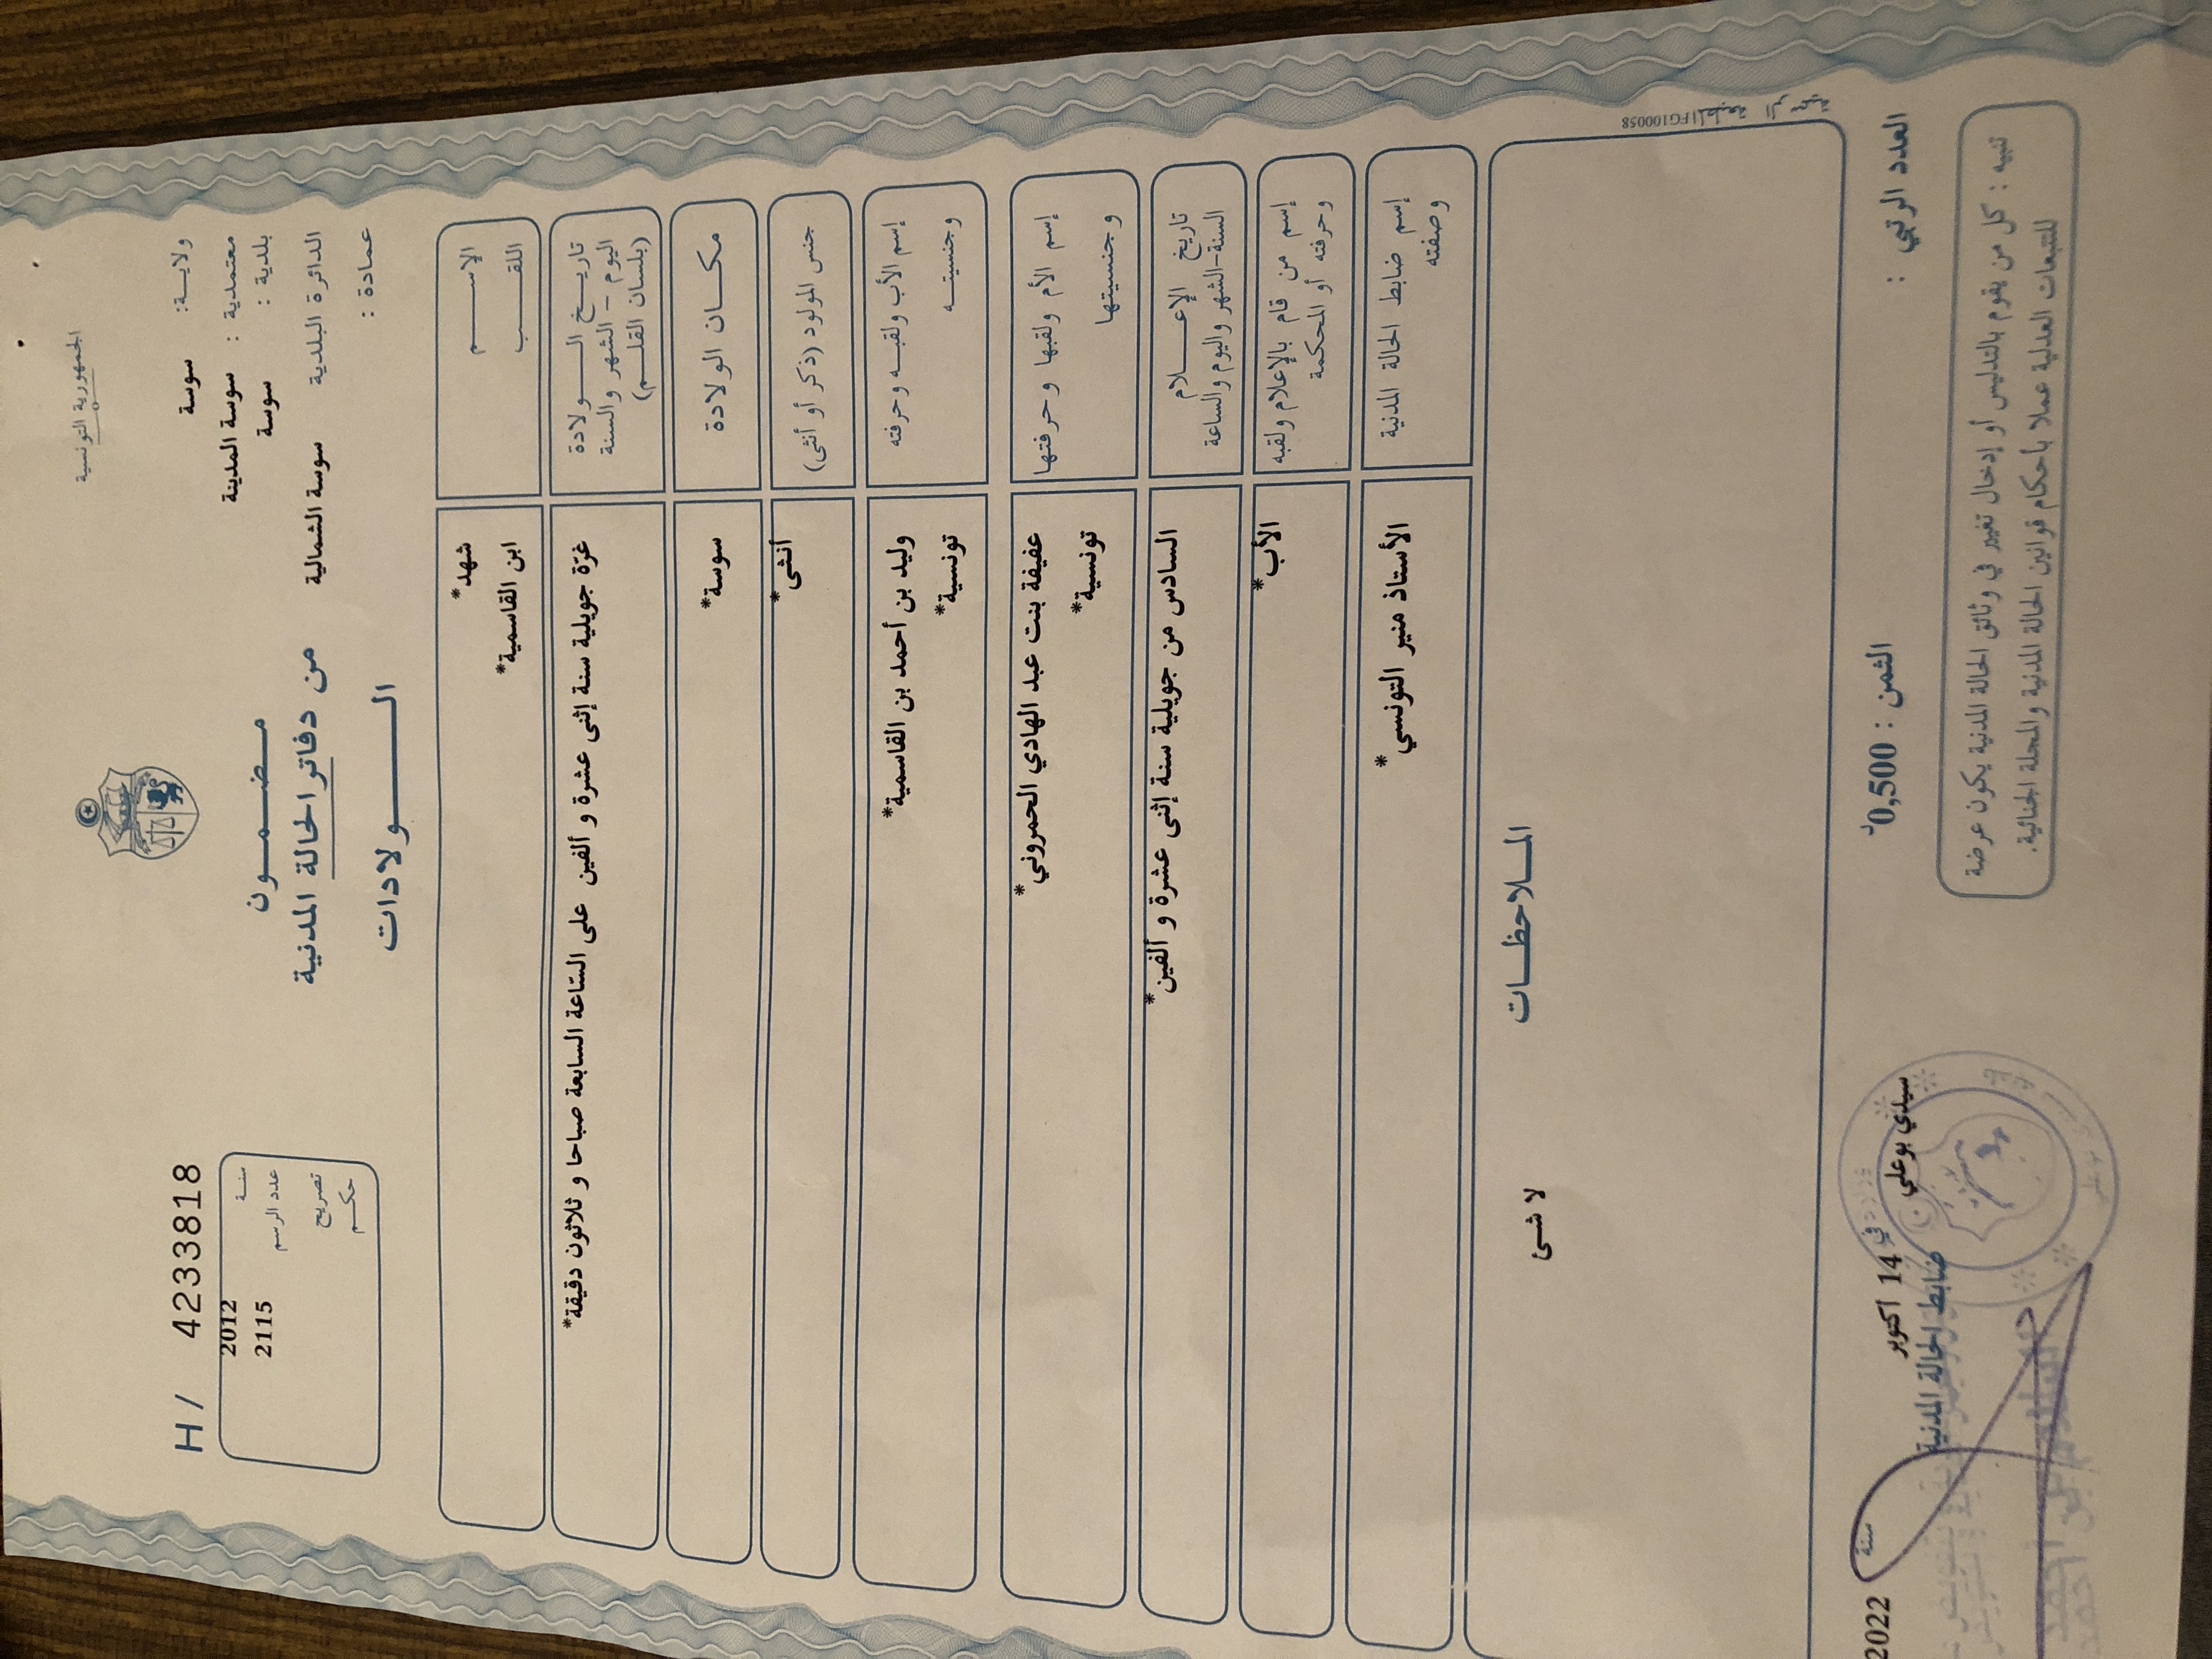 الجمهورية التونسية
H/ 42333818
ولاية: سوسة
معتمدية : سوسة المدينة
بلدية : سوسة
الدائرة البلدية سوسة الشمالية
عمادة :
مضمون
من دفاتر الحالة المدنية
الولادات
سنة 2012
عدد الرسم 2115
تصريح
حكم
الإسم شهد*
اللقب ابن القاسمية*
تاريخ الولادة
اليوم - الشهر والسنة
(بلسان القلم)
غرّة جويلية سنة إثنى عشرة و ألفين على السّاعة السابعة صباحا و ثلاثون دقيقة*
مكان الولادة سوسة*
جنس المولود (ذكر أو أنثى) أنثى*
إسم الأب ولقبه وحرفته وليد بن أحمد بن القاسمية*
وجنسيته تونسية*
إسم الأم ولقبها وحرفتها عفيفة بنت عبد الهادي الحمروني*
وجنسيتها تونسية*
تاريخ الإعلام
السنة-الشهر واليوم والساعة
السادس من جويلية سنة إثنى عشرة و ألفين*
إسم من قام بالإعلام ولقبه
وحرفته أو المحكمة
الأب*
إسم ضابط الحالة المدنية
وصفته
الأستاذ منير التونسي*
الملاحظات
لا شئ
FG100058 المطبعة الرسمية
العدد الرتبي :
الثمن : 0,500د
سيدي بوعلي في 14 أكتوبر سنة 2022
ضابط الحالة المدنية
تنبيه : كل من يقوم بالتدليس أو إدخال تغيير في وثائق الحالة المدنية يكون عرضة
للتتبعات العدلية عملا بأحكام قوانين الحالة المدنية والمجلة الجنائية.